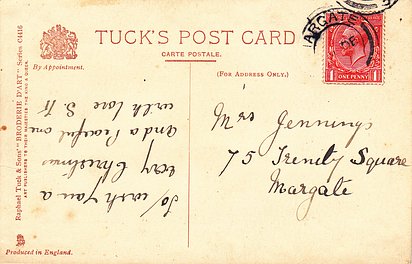 TUCK'S POST CARD
CARTE POSTALE.
By Appointment.
(FOR ADDRESS ONLY.)
Raphael Tuck & Sons' "BRODERIE D'ART" Series C1416
ART PUBLISHERS TO THEIR MAJESTIES THE KING & QUEEN.
To wish you a
very Christmas
and a Peaceful one
with love S. H
MARGATE
DE
1 1
ONE PENNY
Mrs Jennings
75 Trinity Square
Margate
Produced in England.